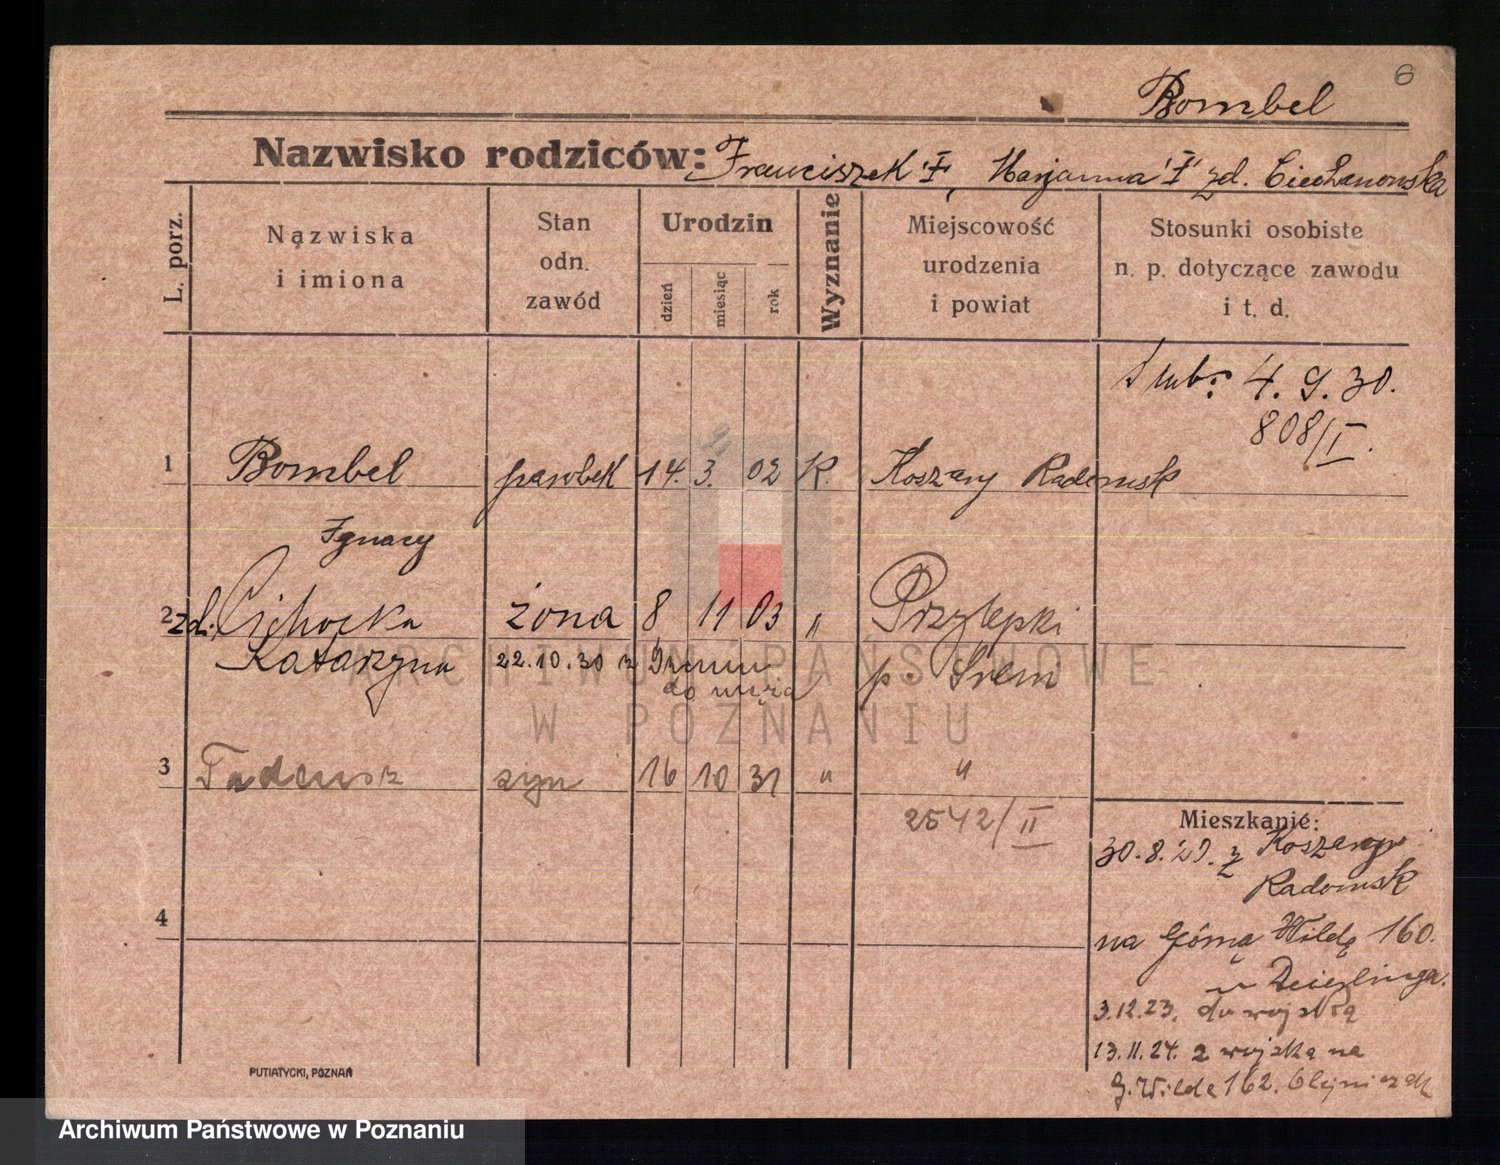 6
Bombel
Nazwisko rodziców: Franciszek, Marjanna zd. Ciechanowska
L. porz.
Nązwiska
i imiona
Stan
odn.
zawód
Urodzin
dzień
miesiąc
rok
Wyznanie
Miejscowość
urodzenia
i powiat
Stosunki osobiste
n. p. dotyczące zawodu
i t. d.
ślub: 4. 9. 30.
808/I.
1 Bombel parobek 14. 3. 02 K. Koszary Radomsk
Ignacy
2 zd. Cichocka żona 8 11 03 " Przylepki
Katarzyna 22.10.30 z
do męża
p. Śrem
ARCHIWUM PAŃSTWOWE
W POZNANIU
3 Tadeusz syn 16 10 31 " "
2542/II
4
Mieszkanie:
30.8.21. z Koszary
Radomsk
na Górną Wildę 160.
u
3.12.23. do wojska
13.11.24. z wojska na
G. Wilda 162. Olejniczak
PUTIATYCKI, POZNAŃ
Archiwum Państwowe w Poznaniu